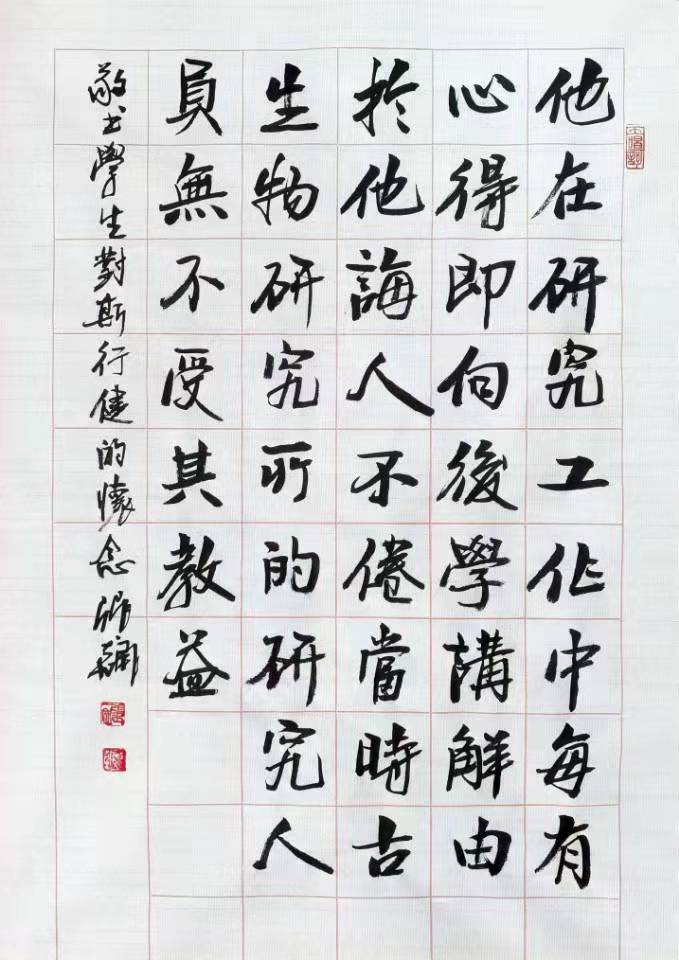 他在研究工作中每有
心得即向後學講解由
於他誨人不倦當時古
生物研究所的研究人
員無不受其教益
敬书學生對斯行健的懷念